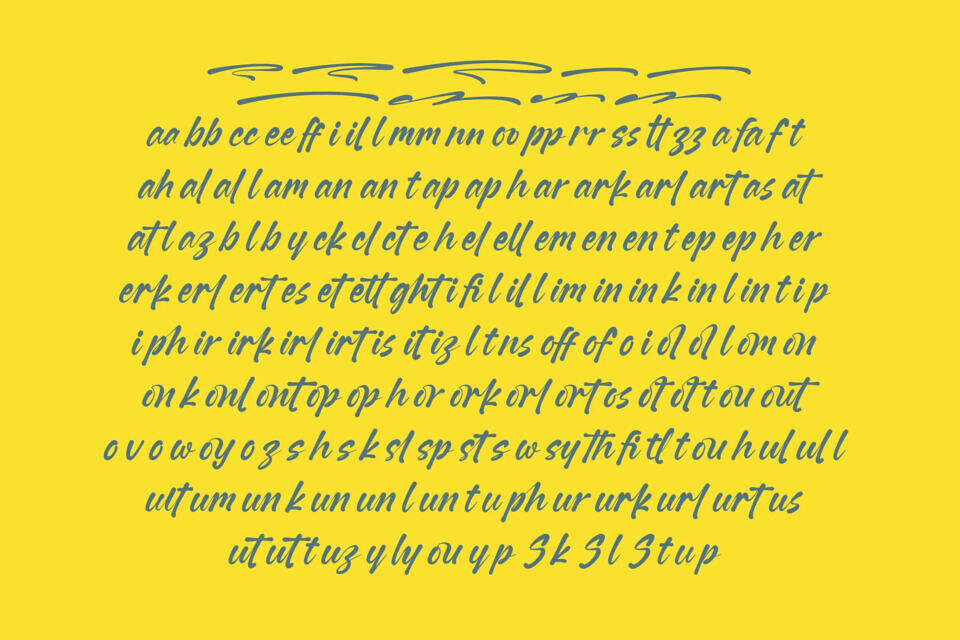 aa bb cc ee ff i il l mm nn oo pp rr ss tt zz a fa f t
ah al al l am an an t ap ap h ar ark arl art as at
atl az b l b y ck cl ct e h el ell em en en t ep ep h er
erk erl ert es et ett ght i fi l il l im in in k in l in t i p
i ph ir irk irl irt is it iz l t ns off of o i ol ol l om on
on k onl ont op op h or ork orl ort os ot ot t ou out
o v o w oy o z s h s k sl sp st s w sy th fi tl t ou h ul ul l
ult um un k un un l un t u ph ur urk url urt us
ut utt t uz y ly ou y p S k S l S t u p